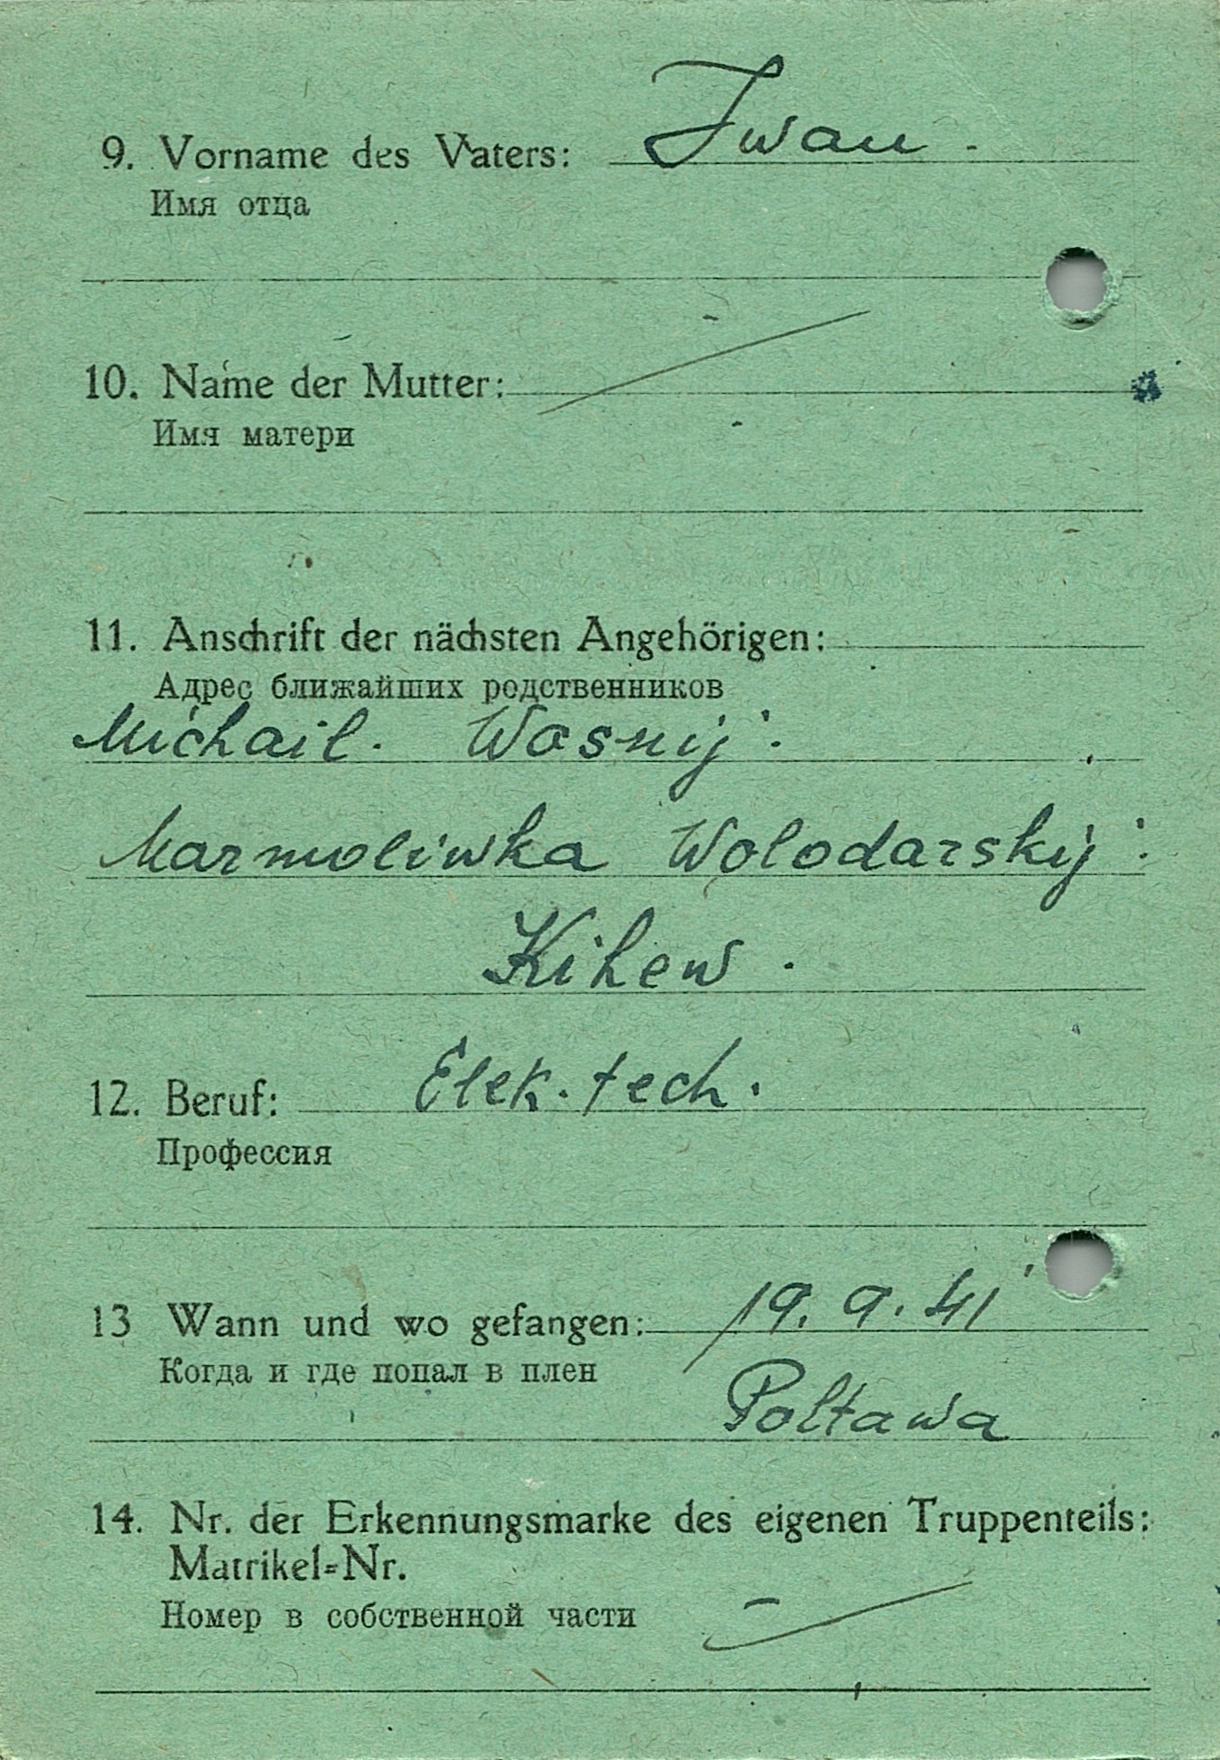 9. Vorname des Vaters: Iwan.
Имя отца
10. Name der Mutter:
Имя матери
11. Anschrift der nächsten Angehörigen:
Адрес ближайших родственников
Michail. Wosnij.
Marmoliwka Wolodarskij.
Kihew.
12. Beruf: Elek. tech.
Профессия
13 Wann und wo gefangen: 19. 9. 41
Когда и где попал в плен
Poltawa
14. Nr. der Erkennungsmarke des eigenen Truppenteils:
Matrikel-Nr.
Номер в собственной части